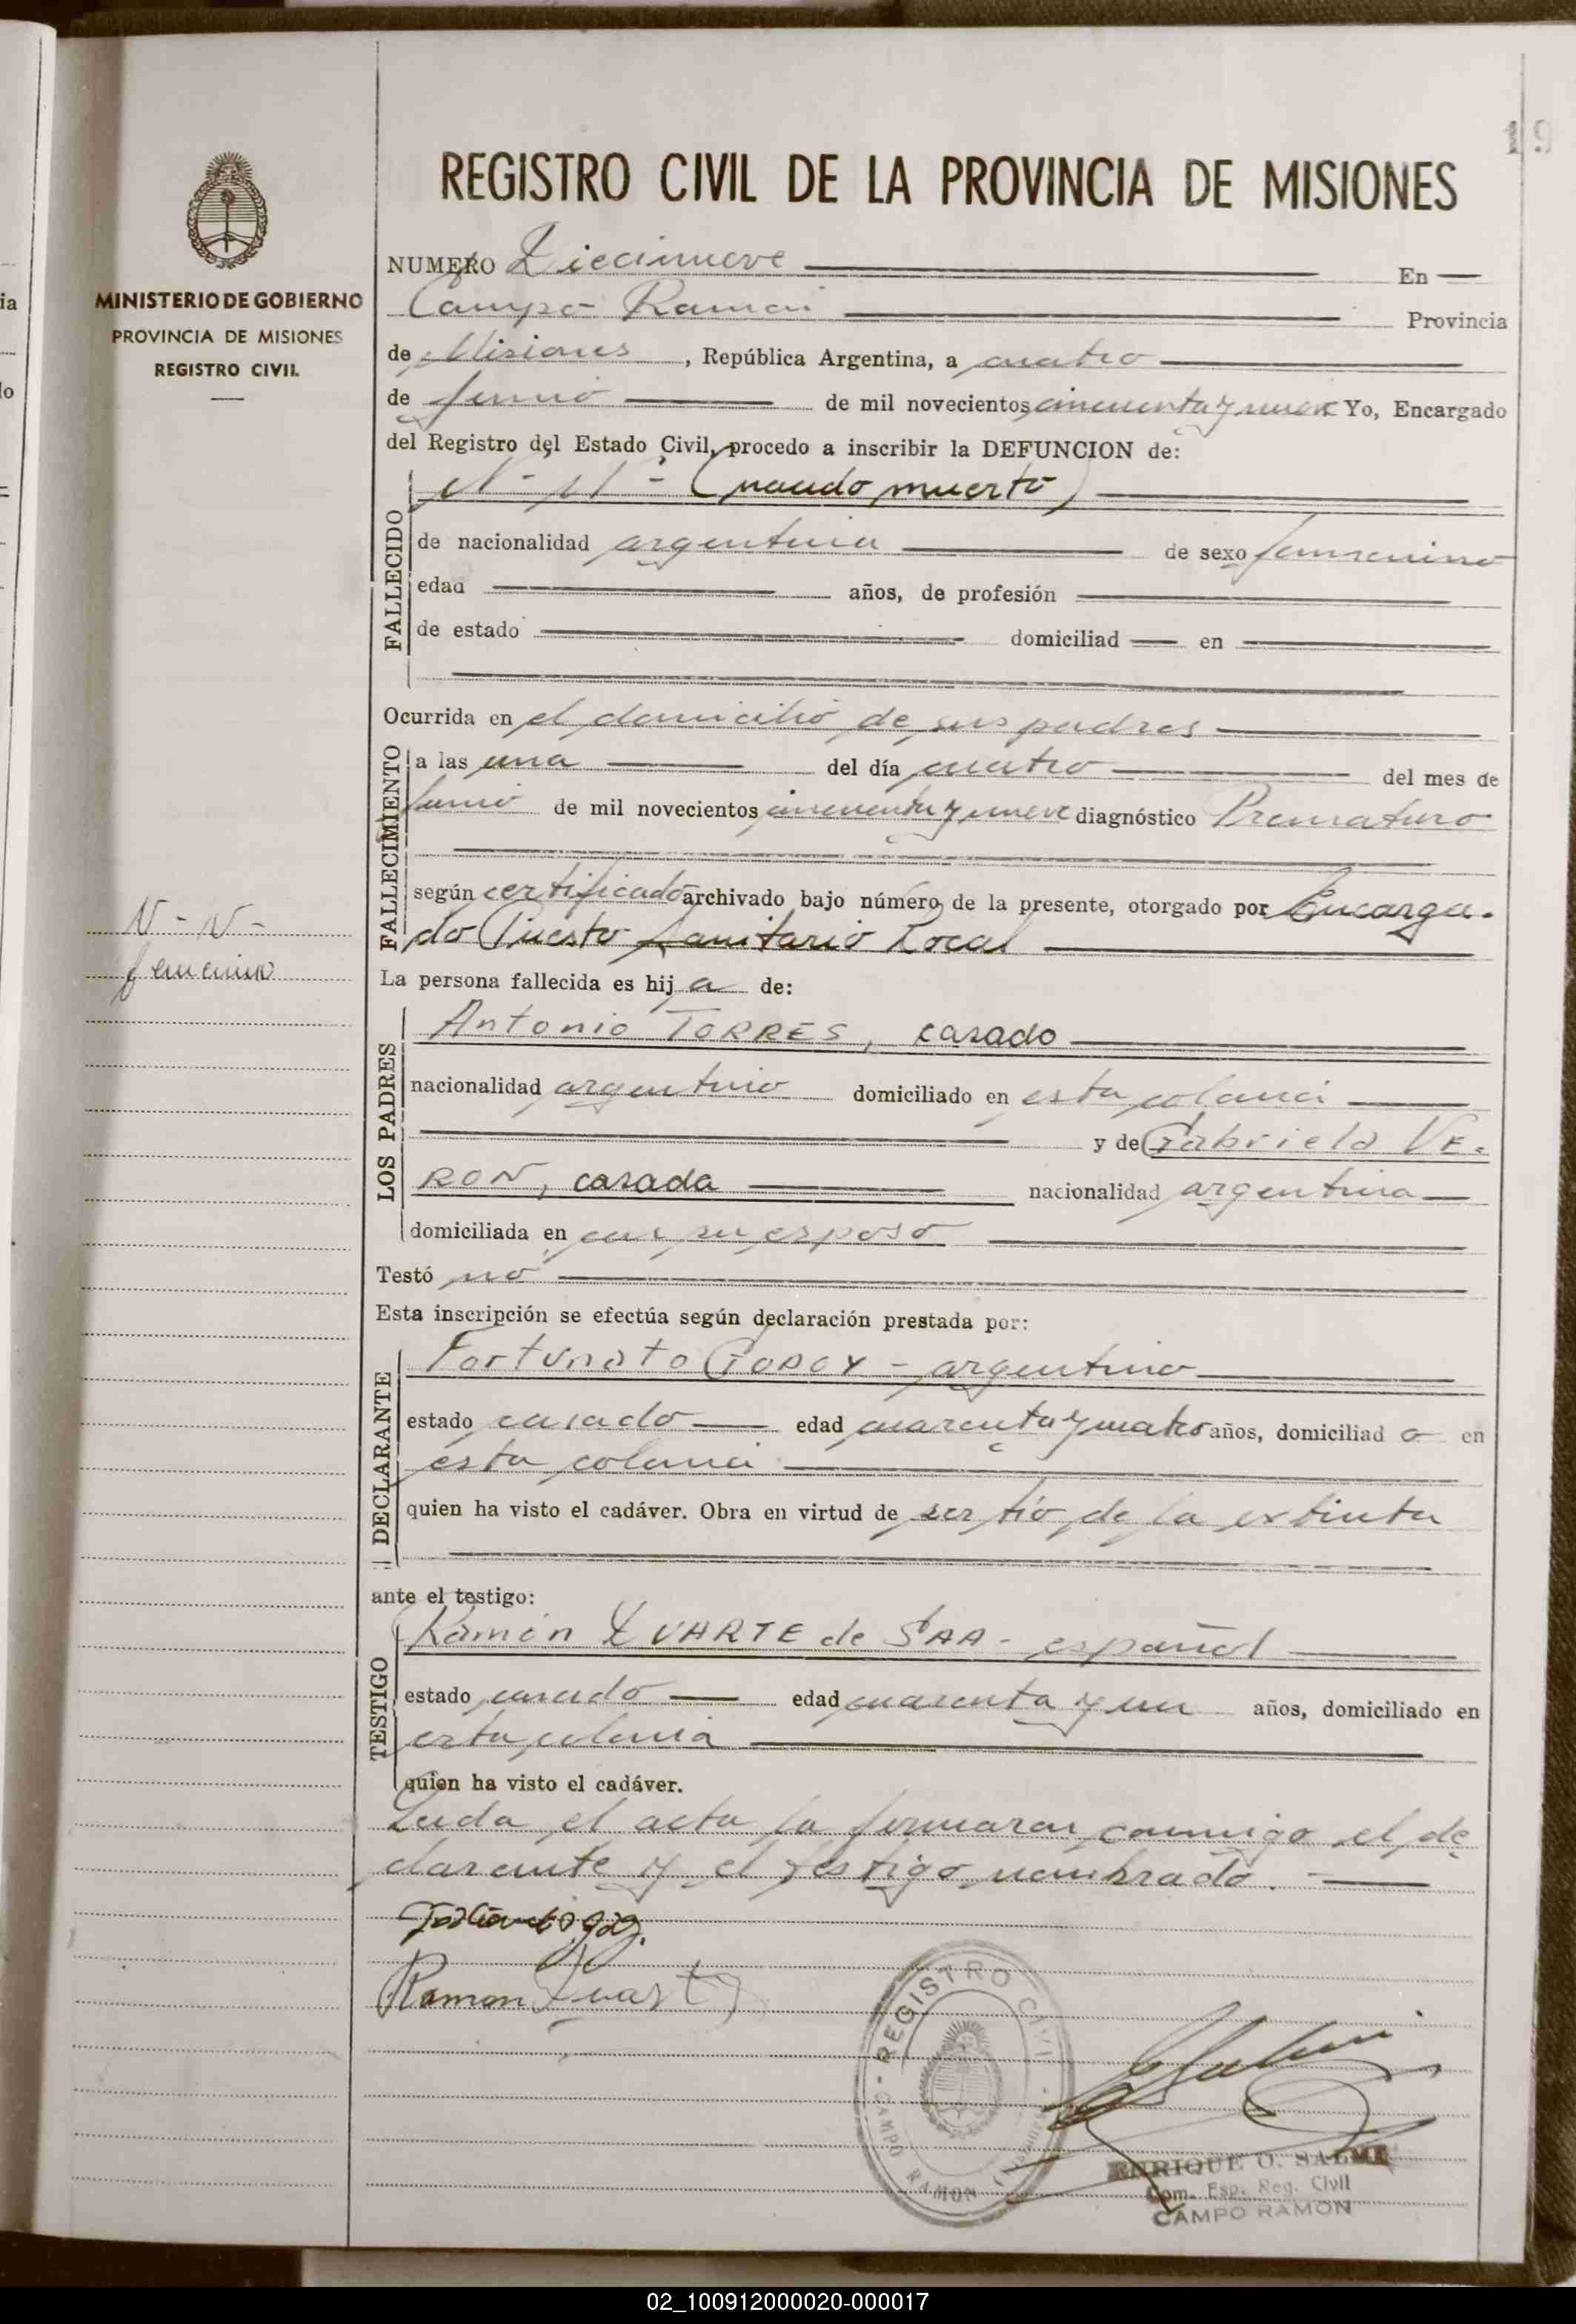 19
REGISTRO CIVIL DE LA PROVINCIA DE MISIONES
MINISTERIO DE GOBIERNO
PROVINCIA DE MISIONES
REGISTRO CIVIL
N - N -
femenino
NUMERO Diecinueve En
Campo Ramón Provincia
de Misiones, República Argentina, a cuatro
de junio de mil novecientos cincuenta y nueve Yo, Encargado
del Registro del Estado Civil, procedo a inscribir la DEFUNCION de:
N - N - (nacido muerto)
FALLECIDO
de nacionalidad argentina de sexo femenino
edad años, de profesión
de estado domiciliad en
Ocurrida en el domicilio de sus padres
FALLECIMIENTO
a las una del día cuatro del mes de
junio de mil novecientos cincuenta y nueve diagnóstico Prematuro
según certificado archivado bajo número de la presente, otorgado por Encarga-
do Puesto Sanitario Local
La persona fallecida es hija de:
LOS PADRES
Antonio TORRES, casado
nacionalidad argentino domiciliado en esta colonia
y de Gabriela VE-
RON, casada nacionalidad argentina
domiciliada en con su esposo
Testó no
Esta inscripción se efectúa según declaración prestada por:
DECLARANTE
Fortunato GODOY - argentino
estado casado edad cuarenta y cuatro años, domiciliado en
esta colonia
quien ha visto el cadáver. Obra en virtud de ser tío de la extinta
ante el testigo:
TESTIGO
Ramón DUARTE de SAA - español
estado casado edad cuarenta y un años, domiciliado en
esta colonia
quien ha visto el cadáver.
Leida el acta la firmaran conmigo el de
clarante y el testigo nombrado.
Ramon Duarte
REGISTRO CIVIL
CAMPO RAMON
ENRIQUE O.
Com. Esp. Reg. Civil
CAMPO RAMON
02_100912000020-000017